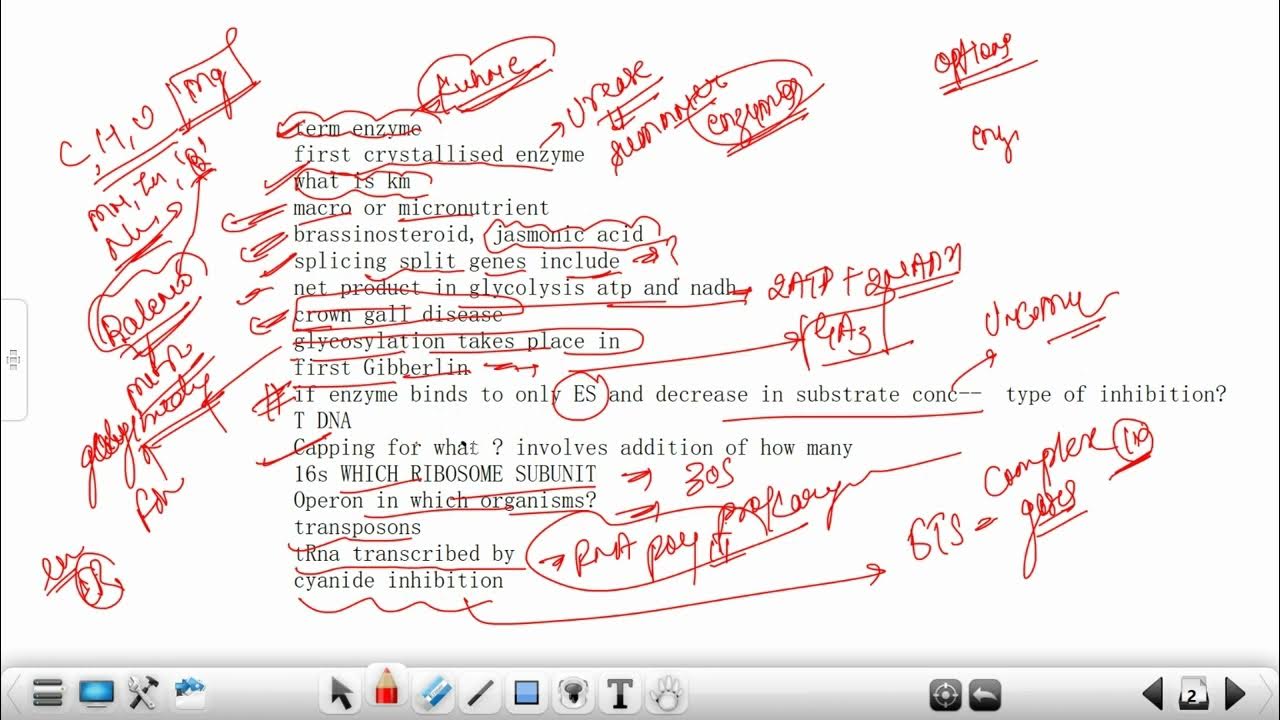 options
Mg
Kuhne
C, H, O
Urease
term enzyme
Summner
enzymes
first crystallised enzyme
enzy
what is km
'B'
macro or micronutrient
brassinosteroid, jasmonic acid
splicing split genes include → ?
net product in glycolysis atp and nadh
2ATP + 2NADH
crown gall disease
glycosylation takes place in
GA3
first Gibberlin
#
if enzyme binds to only ES and decrease in substrate conc-- type of inhibition?
T DNA
Capping for what ? involves addition of how many
complex
16s WHICH RIBOSOME SUBUNIT → 30S
Operon in which organisms? → prokaryo
ETS =
transposons
tRna transcribed by → RNA poly
cyanide inhibition
ER
2